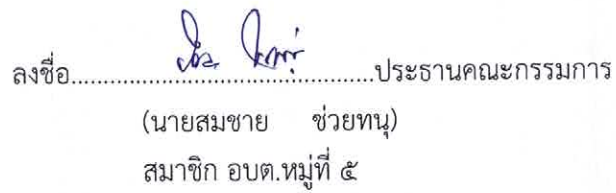 ลงชื่อ.................................................ประธานคณะกรรมการ
(นายสมชาย ช่วยทนุ)
สมาชิก อบต.หมู่ที่ ๕